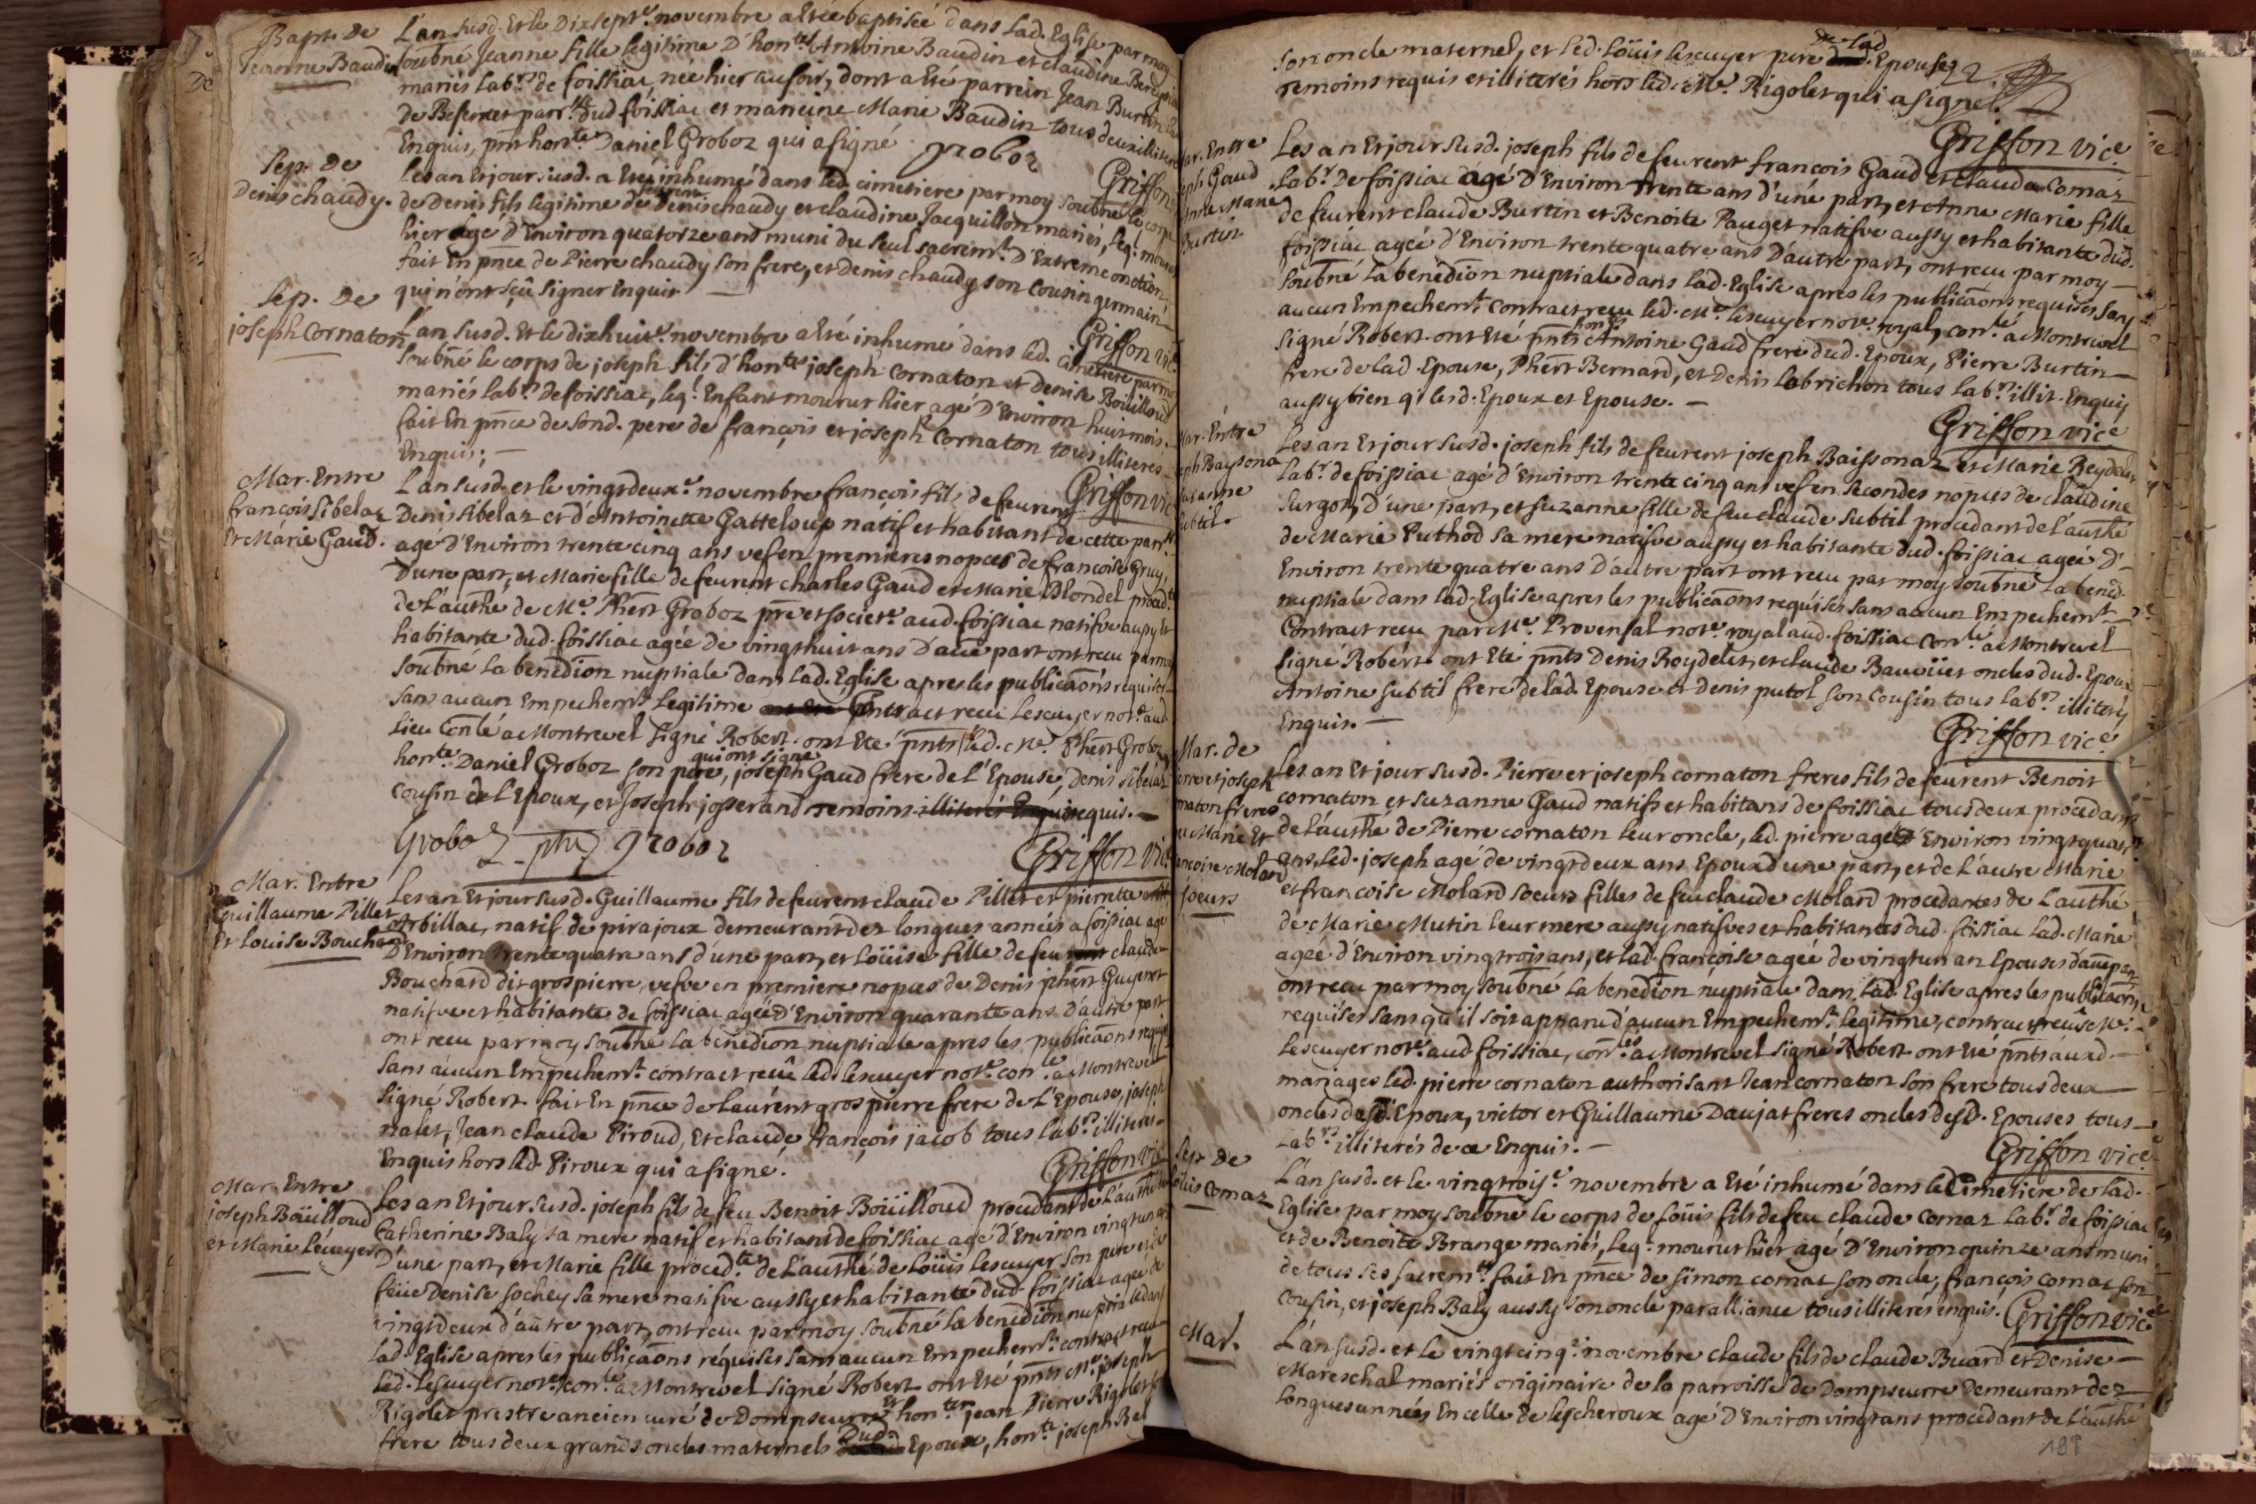 Bapt. de
Jeanne Baudin
L'an susd. Et le Dixsept.e novembre a Eté baptisée dans lad. Eglise par moy
soubné Jeanne fille legitime D'hon.tes Antoine Baudin et claudine
mariés lab.rs de foissiac, née hier au soir, dont a Eté parrein Jean Burtin
De parr.se dud foissiac et mareine Marie Baudin tous deux illiterés
Enquis, pñt hon.te Daniel Groboz qui a signé Groboz
Griffon
Sep. de
Denis chaudy.
Les an Et jour susd. a Eté inhumé dans led. cimetiere par moy soubné le corps
de Denis fils legitime de feurent Denis chaudy et claudine Jacquillon mariés, leq.l mourut
hier agé D'Environ quatorze ans muni du seul sacrem.t D'Extreme onction
fait En pñce de Pierre chaudy son frere, et Denis chaudy son Cousin germain
qui n'ont sçû signer Enquis —
Griffon vic.e
Sep. De
joseph Cornaton
L'an susd. Et le dixhuit.e novembre a Eté inhumé dans led. cimetiere par moy
soubné le corps de joseph fils d'hon.tes joseph Cornaton et Denise Boüilloud
mariés lab.rs de foissiac, leq.l Enfant mourut hier agé D'Environ huit mois.
fait En pñce de sond. pere de françois et joseph Cornaton tous illiterés
Enquis; —
Griffon vic.e
Mar. Entre
françois Sibelaz
Et Marie Gaud.
L'an susd. et le vingtdeux.e novembre françois fils de feurent
Denis Sibelaz et d'Antoinette Gatteloup natif et habitant de cette parr.se
agé D'Environ trente cinq ans vef en premieres nopces de francoise Gruy,
D'une part, et Marie fille de feurent charles Gaud et Marie Blondel proced.te
de L'authé de M.e Phert Groboz pre et societ.e aud. foissiac natifve aussy Et
habitante dud. foissiac agée de vingthuit ans D'aue part ont reçu par moy
soubné la benedion nuptiale dans lad. Eglise apres les publicaõns requises
sans aucun Empechem.t legitime Contract reçu Lescuyer not.e aud.
lieu Conlé a Montrevel signé Robert. ont Eté pñts led. M.e Phert Groboz
hon.te Daniel Groboz son pere, qui ont signé joseph Gaud frere de L'Epouse, Denis Sibelaz
Cousin de L'Epoux, et Joseph josserand temoins illiterés Enquis requis. —
Groboz ptre Groboz
Griffon vic.e
Mar. Entre
Guillaume Pillet
Et Louise Bouchard
Les an Et jour susd. Guillaume fils de feurent claude Pillet et pierrette
Arbillac, natif de pirajoux demeurant dez longues années a foissiac agé
D'Environ trente quatre ans d'une part, et Loüise fille de feu claude
Bouchard dit gros pierre, vefve en premiere nopces de Denis phert Guyenet
natifve et habitante de foissiac agée D'Environ quarante ans D'autre part
ont reçu par moy soubné la benedion nuptiale apres les publicaõns requises
sans aucun Empechem.t contract reçû led. lescuyer not.e con.lé a Montrevel
signé Robert. fait En pñce de Laurent gros pierre frere de L'Epouse, joseph
nalet, Jean claude Piroud, Et claude françois jacob tous lab.rs illiterés
Enquis hors led. Piroux qui a signé.
Griffon vic.e
Mar. Entre
joseph Boüilloud
et Marie Lécuyer
Les an Et jour susd. joseph fils de feu Benoit Boüilloud procedant de L'authé de
Catherine Baly sa mere natif et habitant de foissiac agé d'Environ vingtun ans
D'une part, et Marie fille proced.te de L'authé de Loüis lescuyer son pere et de
feüe Denise sochey sa mere natifve aussy et habitante dud. foissiac agée de
vingtdeux d'autre part, ont reçu par moy soubné la benedion nuptiale dans
lad. Eglise apres les publicaõns réquises sans aucun Empechem.t contract reçu
led. lescuyer not.e con.lé a Montrevel signé Robert ont Eté pñts M.e joseph
Rigolet prestre ancien curé de Dompseurre Et hon.tes jean Pierre Rigolet son
frere tous deux grands oncles maternels Dud. Epoux, hon.te joseph Bel
son oncle maternel, et led. Loüis lescuyer pere De lad. Epouse,
temoins requis et illiterés hors led. M.e Rigolet qui a signé.
Griffon vic.e
Mar. Entre
joseph Gaud
Anne Marie
Burtin
Les an Et jour susd. joseph fils de feurent françois Gaud et clauda Comaz
lab.r De foissiac agé D'Environ trente ans d'une part, et Anne Marie fille
de feurent claude Burtin et Benoite Pauget natifve aussy et habitante dud.
foissiac agée d'Environ trente quatre ans D'autre part, ont reçu par moy —
soubné la benedion nuptiale dans lad. Eglise apres les publicaõns requises sans
aucun Empechem.t contract reçu led. M.e lescuyer not.e royal, con.lé a Montrevel
signé Robert. ont Eté pñts hon.tes Antoine Gaud frere dud. Epoux, Pierre Burtin —
frere de lad Epouse, Phert Bernard, et Denis labrichon tous lab.rs illit. Enquis
aussy bien q. lesd. Epoux et Epouse. —
Griffon vic.e
Mar. Entre
joseph Baysona
Suzanne
Subtil.
Les an Et jour susd. joseph fils de feurent joseph Baissonaz et Marie Reydelet
lab.r de foissiac agé d'Environ trente cinq ans vef en secondes nopces de claudine
surgot, D'une part, et suzanne fille de feu claude subtil procedant de L'authé
de Marie Puthod sa mere natifve aussy et habitante dud. foissiac agée D'-
Environ trente quatre ans D'autre part ont reçu par moy soubné la bened.
nuptiale dans lad. Eglise apres les publicaõns requises sans aucun Empechem.t —
Contract reçu par M.e Provensal not.e royal aud. foissiac con.lé a Montrevel
signé Robert. ont Eté pñts Denis Roydelet, et claude Bauvüet oncles dud. Epoux
Antoine subtil frere de lad. Epouse et Denis putol son Cousin tous lab.rs illiterés
Enquis. —
Griffon vic.e
Mar. de
pierre et joseph
cornaton freres
a Marie Et
francoise Molard
soeurs
Les an Et jour susd. Pierre et joseph cornaton freres fils de feurent Benoit
cornaton et suzanne Gaud natifs et habitans de foissiac tous deux procedans
de L'authé de Pierre cornaton leur oncle, led. pierre agé D'Environ vingtquatre
ans, led. joseph agé de vingtdeux ans Epoux d'une part, et de L'autre Marie
et francoise Molard soeurs filles de feu claude Molard procedantes de L'authé
de Marie Mutin leur mere aussy natifves et habitantes dud. foissiac lad. Marie
agée d'Environ vingtrois ans, et lad. françoise agée de vingtun an Epouses d'aue part
ont reçu par moy soubné la benedion nuptiale dans lad. Eglise apres les publicaõns
requises sans qu'il soit apparu d'aucun Empechem.t legitime, contract reçûs M.e
lescuyer not.e aud. foissiac, con.lés a Montrevel signé Robert. ont Eté pñts auxd. —
mariages led. pierre cornaton authorisant Jean cornaton son frere tous deux —
oncles desd. Epoux, victor et Guillaume Daujat freres oncles desd. Epouses tous —
lab.rs illiterés de ce Enquis. —
Griffon vic.e
Sep. De
Loüis Comaz
L'an susd. et le vingtrois.e novembre a Eté inhumé dans le Cimetiere de lad.
Eglise par moy soubné le corps de Loüis fils de feu claude Comaz lab.r de foissiac
et de Benoite Brange mariés, leq.l mourut hier agé D'Environ quinze ans muni
de tous ses sacrem.ts fait En pñce de simon comaz son oncle, françois comaz son
cousin, et joseph Baly aussy son oncle par alliance tous illiterés enquis. Griffon vic.e
Mar.
L'an susd. et le vingtcinq.e novembre claude fils de claude Buard et Denise —
Mareschal mariés originaire de la parroisse de Dompseurre Demeurant dez
longues années En celle de lescheroux agé D'Environ vingt ans procedant de L'authé